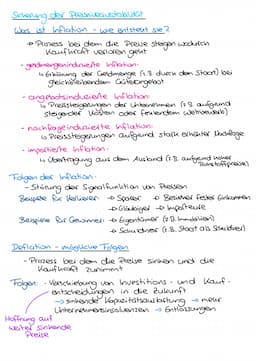 Sicherung der Preisniveaustabilität
Was ist Inflation - wie entsteht sie?
→ Prozess bei dem die Preise steigen wodurch
Kaufkraft verloren geht
- geldmengeninduzierte Inflation:
↳ Erhöhung der Geldmenge (z.B. durch den Staat) bei
gleichbleibendem Güterangebot
- angebotsinduzierte Inflation:
↳ Preissteigerungen der Unternehmen (z.B. aufgrund
steigender Kosten oder fehlendem Wettbewerb)
- nachfrageinduzierte Inflation:
↳ Preissteigerungen aufgrund stark erhöhter Nachfrage
- importierte Inflation:
↳ Übertragung aus dem Ausland (z.B. aufgrund hoher
Rohstoffpreise)
Folgen der Inflation:
- Störung der Signalfunktion von Preisen
Beispiele für Verlierer: → Sparer → Bezieher fester Einkommen
→ Gläubiger → Importeure
Beispiele für Gewinner: → Eigentümer (z.B. Immobilien)
→ Schuldner (z.B. Staat als Schuldner)
Deflation - mögliche Folgen
- Prozess bei dem die Preise sinken und die
Kaufkraft zunimmt
Folgen: - Verschiebung von Investitions- und Kauf-
entscheidungen in die Zukunft
→ sinkende Kapazitätsauslastung → mehr
Unternehmensinsolvenzen → Entlassungen
Hoffnung auf
weiter sinkende
Preise